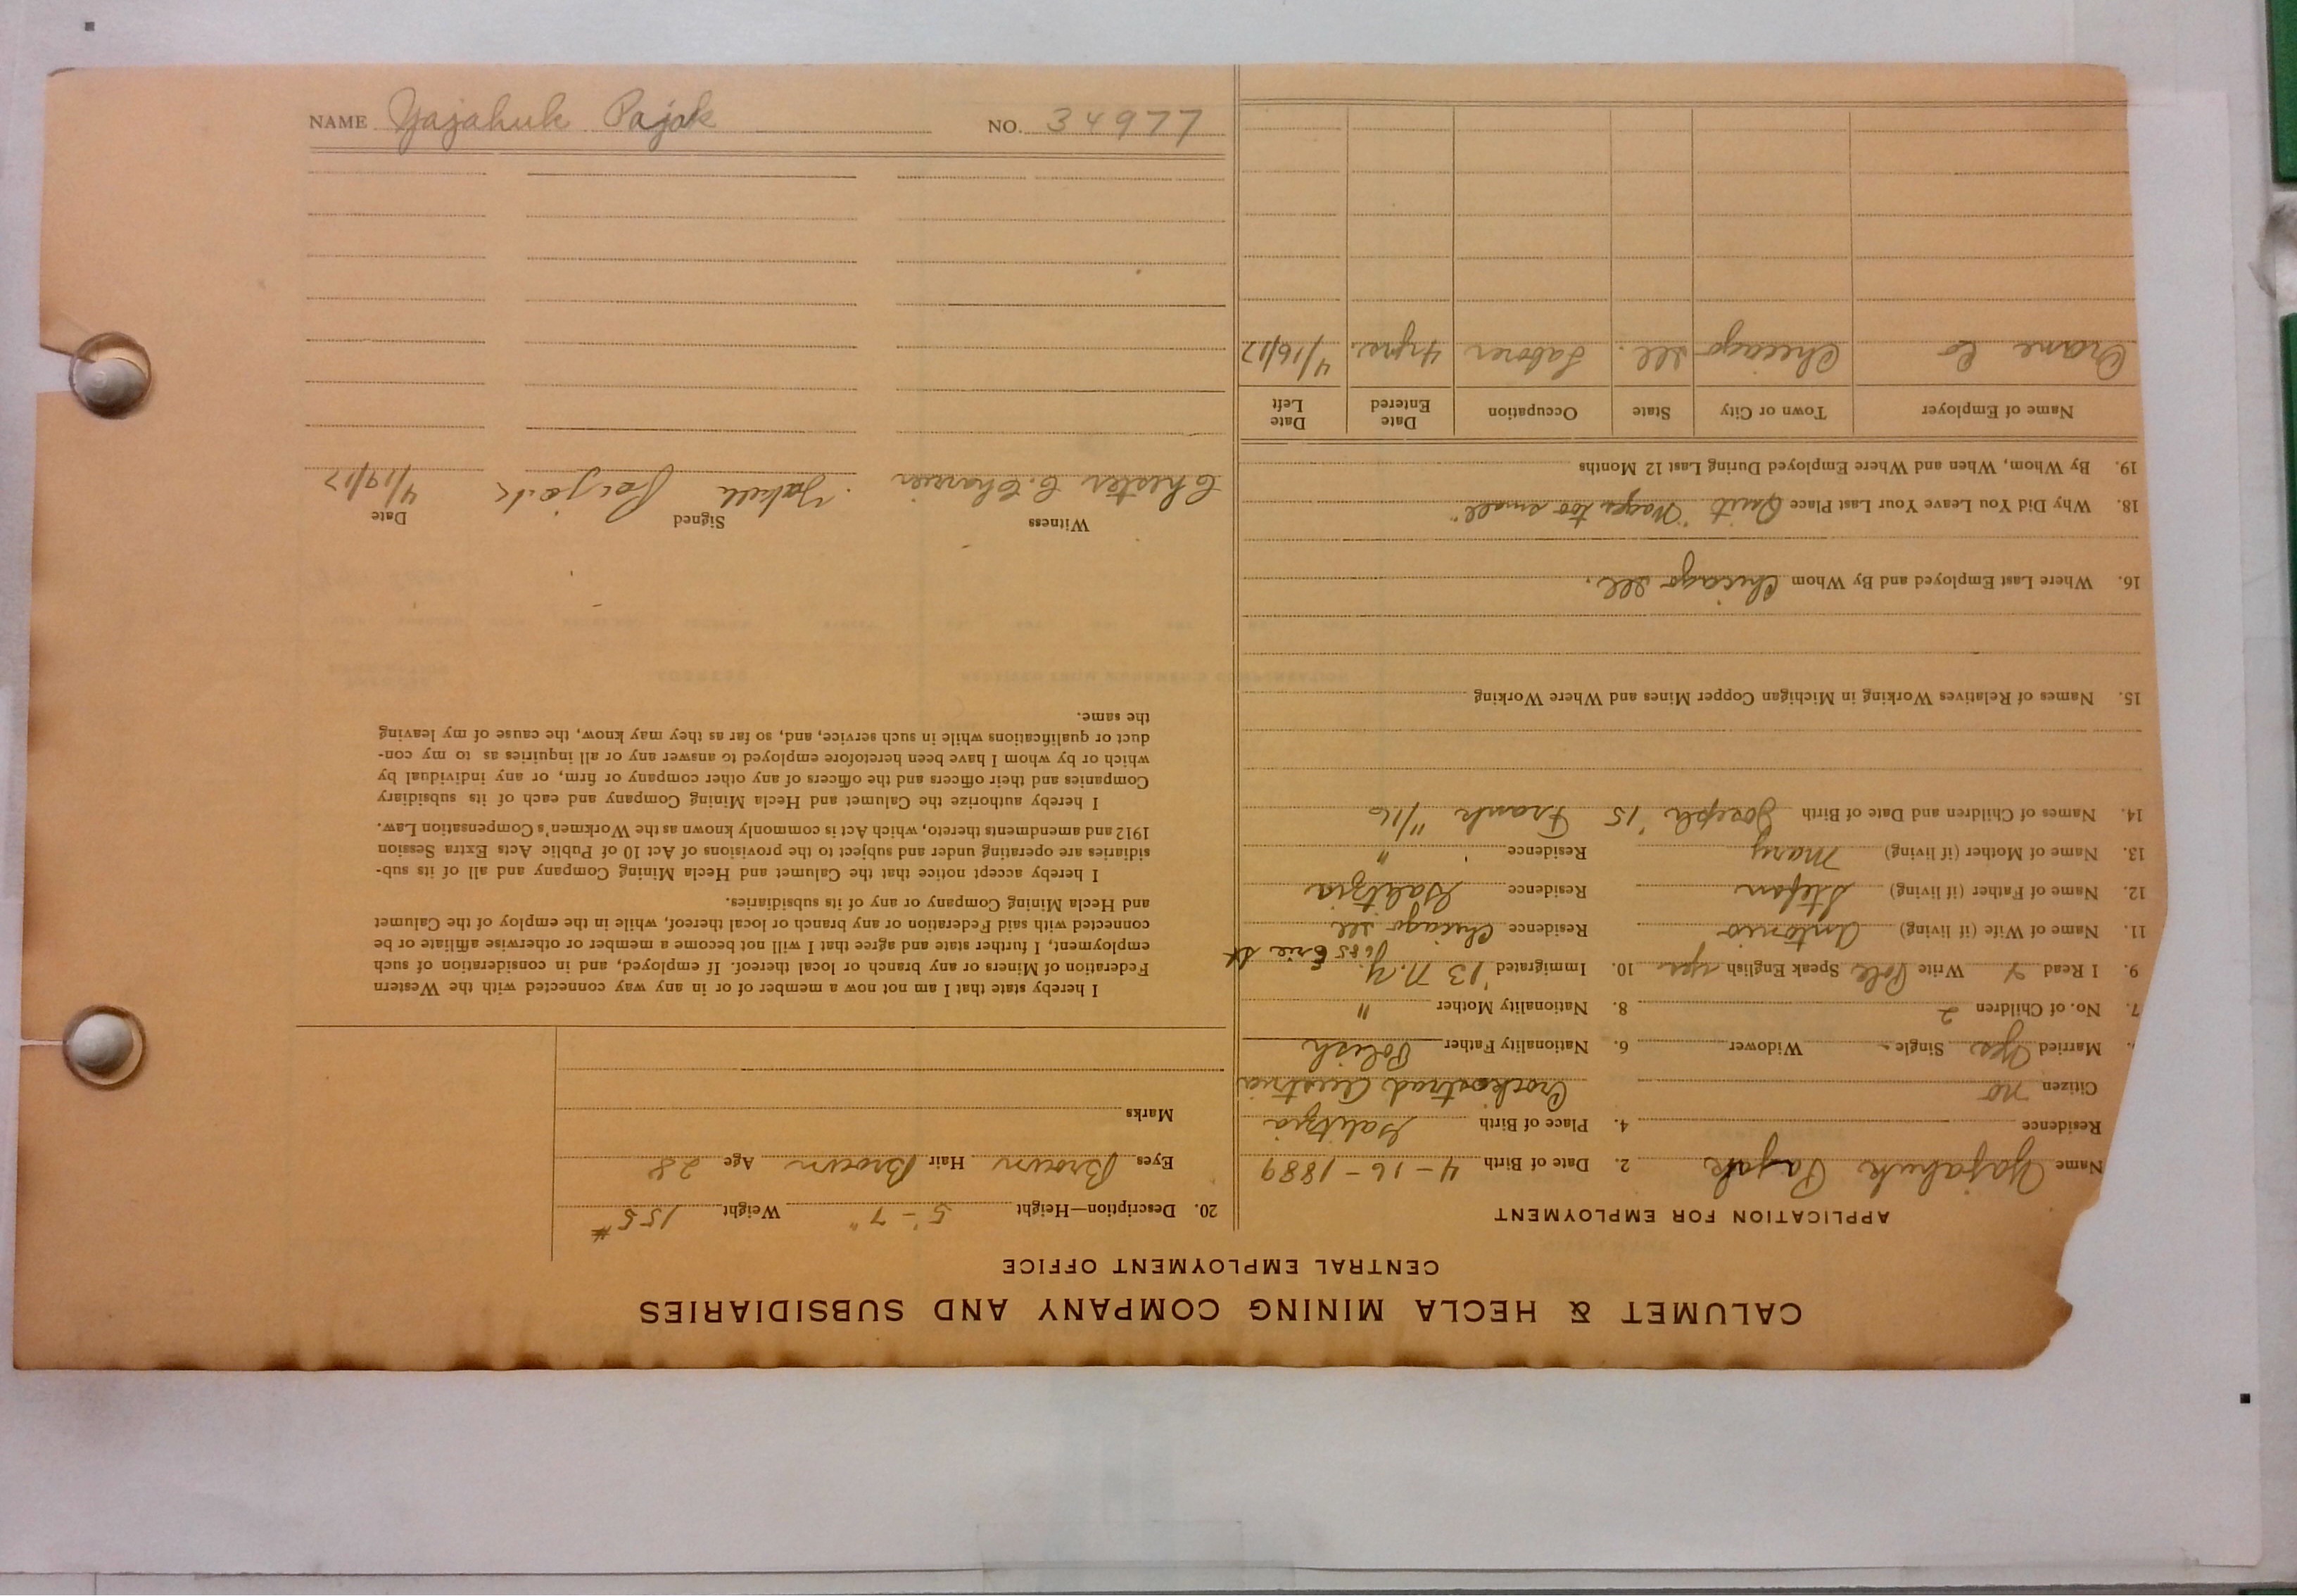 NAME Yajahuk Pajak NO. 34977
CALUMET & HECLA MINING COMPANY AND SUBSIDIARIES
CENTRAL EMPLOYMENT OFFICE
APPLICATION FOR EMPLOYMENT
Name Yajahuk Pajak 2. Date of Birth 4-16-1889
Residence 4. Place of Birth Galitzia
Citizen no Austria
Married Yes Single - Widower 6. Nationality Father Polish
7. No. of Children 2 8. Nationality Mother "
9. I Read Y Write Pole Speak English yes 10. Immigrated '13 N.Y.
1685 Erie St
11. Name of Wife (if living) Antonio Residence Chicago Ill
12. Name of Father (if living) Stefan Residence Galitzia
13. Name of Mother (if living) Mary Residence "
14. Names of Children and Date of Birth Joseph '15 Frank 11/16
15. Names of Relatives Working in Michigan Copper Mines and Where Working
16. Where Last Employed and By Whom Chicago Ill.
18. Why Did You Leave Your Last Place Quit "Wages too small"
19. By Whom, When and Where Employed During Last 12 Months
Name of Employer Town or City State Occupation Date Entered Date Left
Crane Co Chicago Ill. Laborer 4 yrs. 4/16/17
20. Description—Height 5'-7" Weight 155#
Eyes Brown Hair Brown Age 28
Marks
I hereby state that I am not now a member of or in any way connected with the Western
Federation of Miners or any branch or local thereof. If employed, and in consideration of such
employment, I further state and agree that I will not become a member or otherwise affiliate or be
connected with said Federation or any branch or local thereof, while in the employ of the Calumet
and Hecla Mining Company or any of its subsidiaries.
I hereby accept notice that the Calumet and Hecla Mining Company and all of its sub-
sidiaries are operating under and subject to the provisions of Act 10 of Public Acts Extra Session
1912 and amendments thereto, which Act is commonly known as the Workmen's Compensation Law.
I hereby authorize the Calumet and Hecla Mining Company and each of its subsidiary
Companies and their officers and the officers of any other company or firm, or any individual by
which or by whom I have been heretofore employed to answer any or all inquiries as to my con-
duct or qualifications while in such service, and, so far as they may know, the cause of my leaving
the same.
Witness Signed Date
Chester C. Charrier Pajak 4/19/17